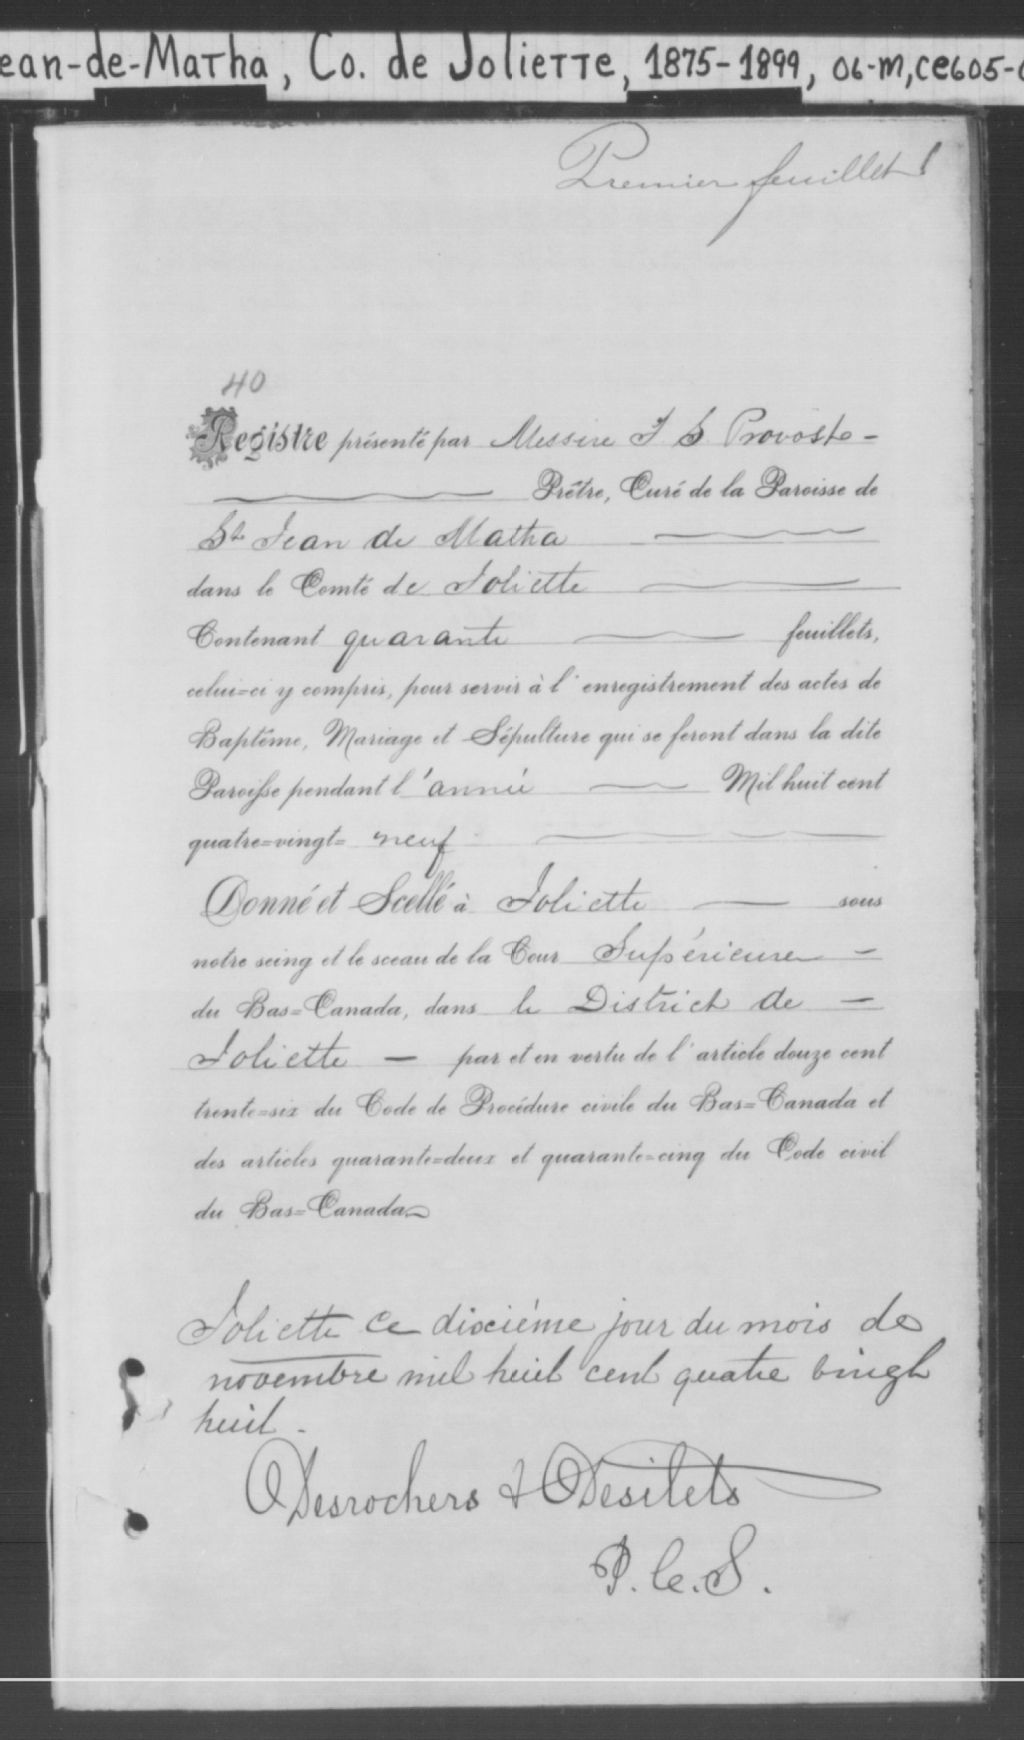 ean-de-Matha, Co. de Joliette, 1875-1899, 06-m, ce605-
Premier feuillet
40
Registre présenté par Messire T S Provost -
Prêtre, Curé de la Paroisse de
St Jean de Matha
dans le Comté de Joliette
Contenant quarante feuillets,
celui=ci y compris, pour servir à l'enregistrement des actes de
Baptême, Mariage et Sépulture qui se feront dans la dite
Paroisse pendant l'année Mil huit cent
quatre=vingt= neuf
Donné et Scellé à Joliette sous
notre seing et le sceau de la Cour Supérieure -
du Bas=Canada, dans le District de -
Joliette - par et en vertu de l'article douze cent
trente=six du Code de Procédure civile du Bas=Canada et
des articles quarante=deux et quarante=cinq du Code civil
du Bas=Canada
Joliette ce dixième jour du mois de
novembre mil huit cent quatre vingt
huit -
Desrochers & Desilets
P.C.S.